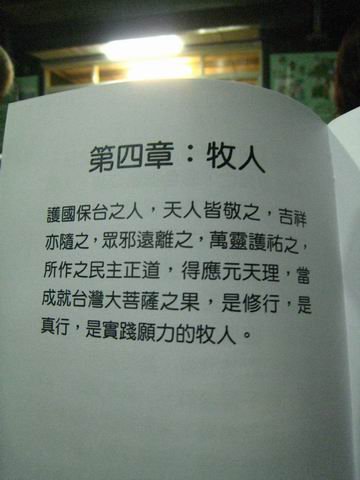 第四章：牧人
護國保台之人，天人皆敬之，吉祥
亦隨之，眾邪遠離之，萬靈護祐之，
所作之民主正道，得應元天理，當
成就台灣大菩薩之果，是修行，是
真行，是實踐願力的牧人。